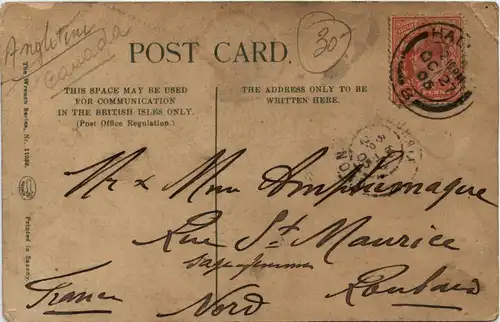 Angleterre
Canada
30-
POST CARD.
THIS SPACE MAY BE USED
FOR COMMUNICATION
IN THE BRITISH ISLES ONLY.
(Post Office Regulation.)
THE ADDRESS ONLY TO BE
WRITTEN HERE.
The Wrench Series, No. 11599
Printed in Saxony
OC 27
PENNY
Mr & Mme
Rue St Maurice
Roubaix
France
Nord